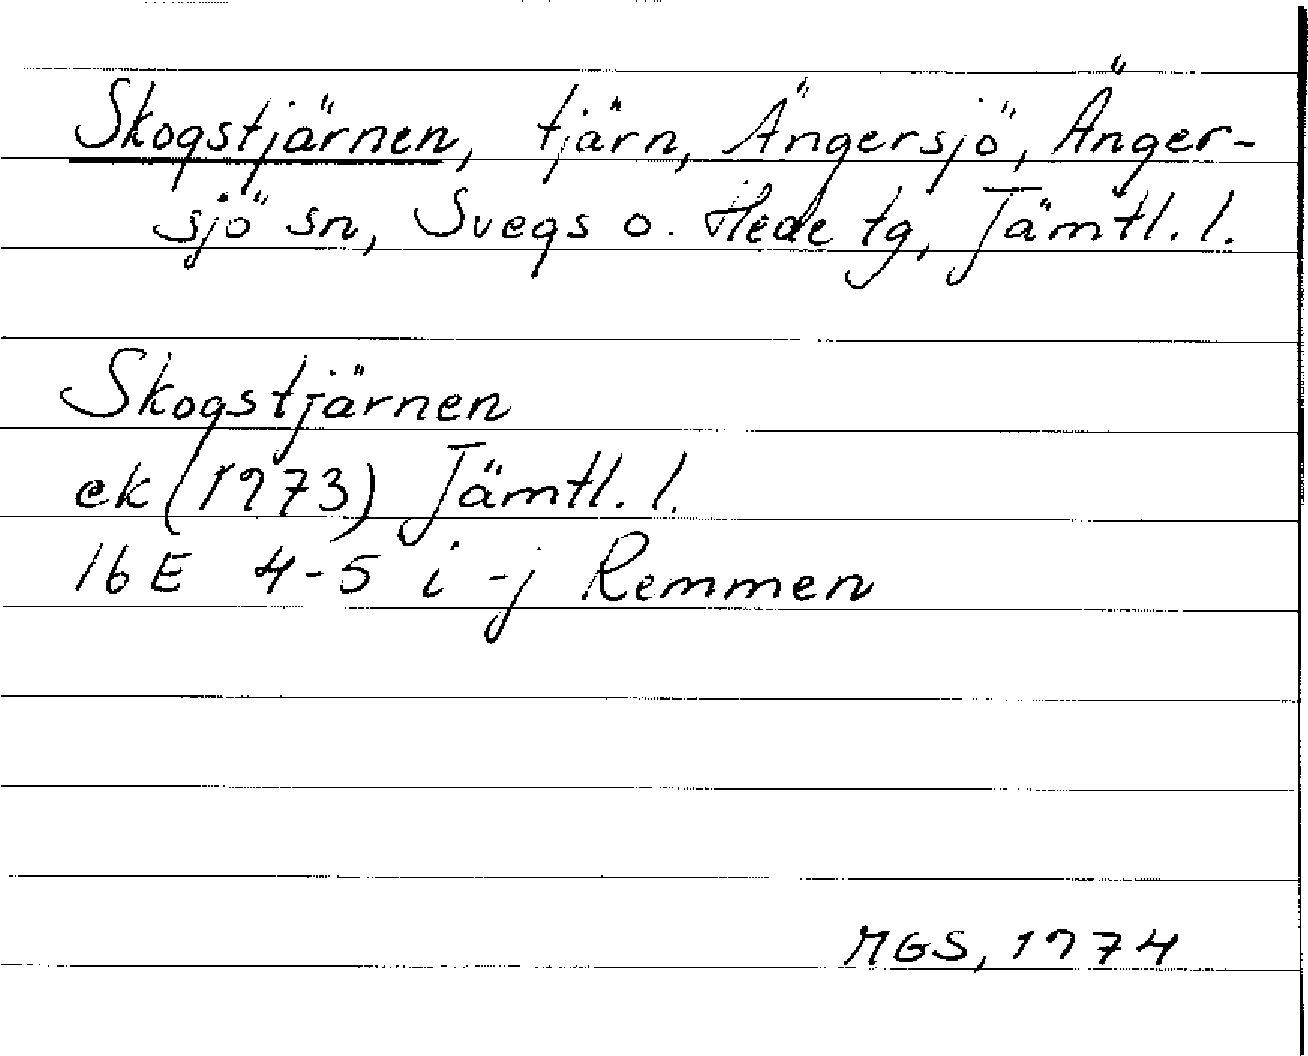 Skogstjärnen, tjärn, Ängersjö, Änger-
sjö sn, Svegs o. Hede tg, Jämtl. l.
Skogstjärnen
ek (1973) Jämtl. l.
16E 4-5 i -j Remmen
MGS, 1974